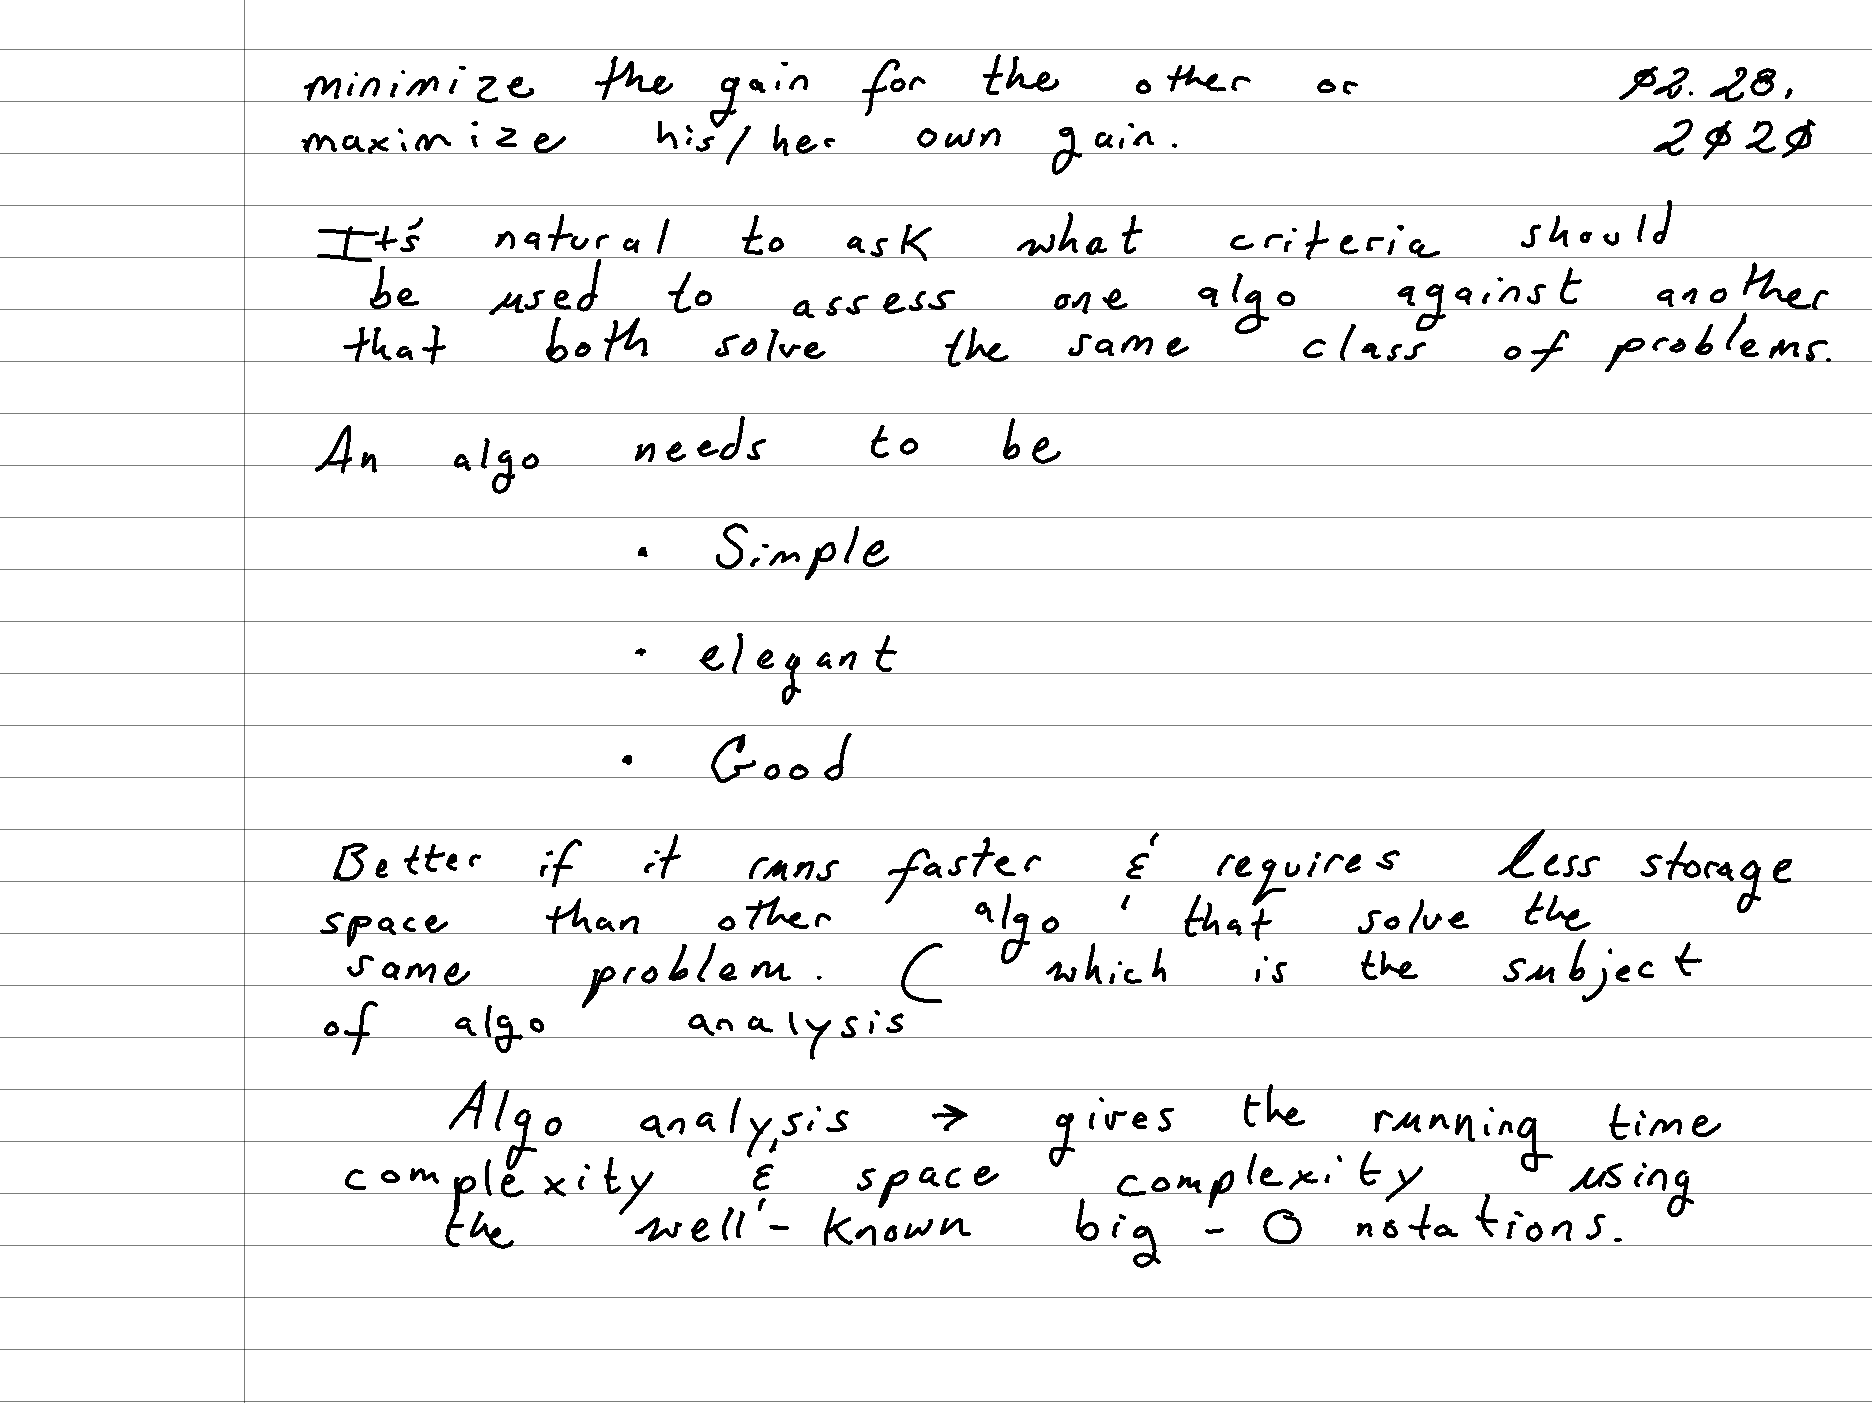 minimize the gain for the other or
02.28.
maximize his/her own gain.
2020
It's natural to ask what criteria should
be used to assess one algo against another
that both solve the same class of problems.
An algo needs to be
• Simple
• elegant
• Good
Better if it runs faster & requires less storage
space than other algo that solve the
same problem. ( which is the subject
of algo analysis
Algo analysis → gives the running time
complexity & space complexity using
the well-known big-O notations.